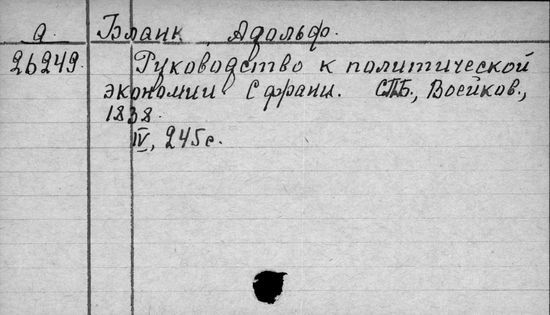 Q. Бланк Адольф.
26249. Руководство к политической
экономии С франц. СПБ., Воейков.,
1838.
IV, 245 с.